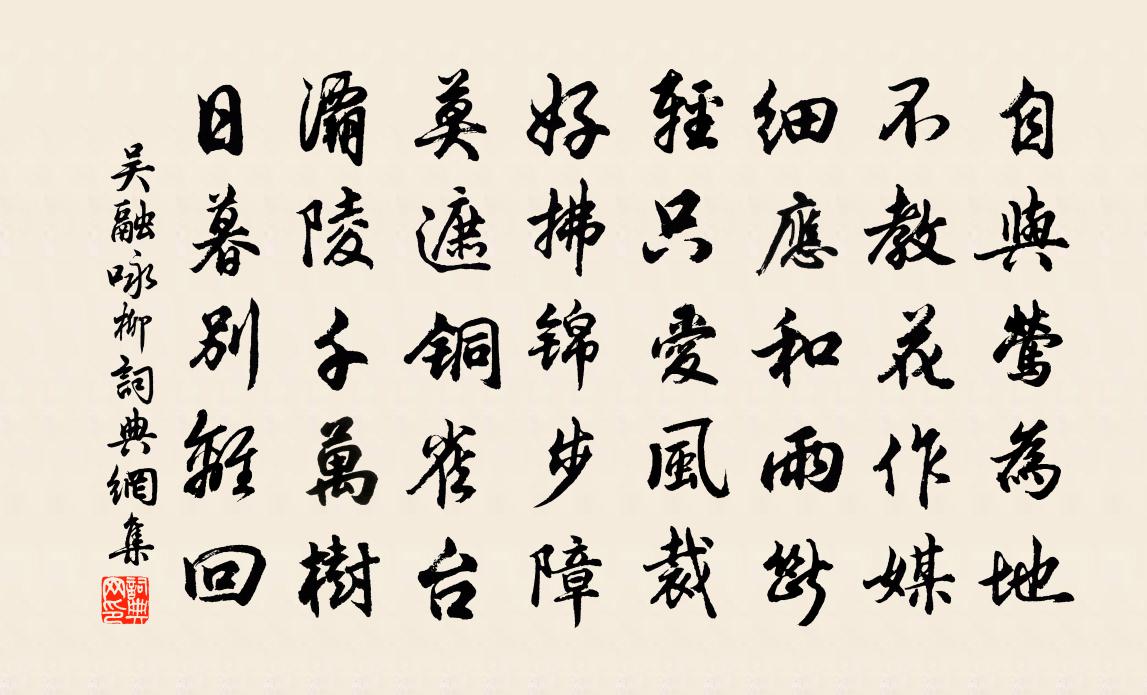 自與鶯為地
不教花作媒
細應和雨斷
輕只愛風裁
好拂錦步障
莫遮銅雀台
灞陵千萬樹
日暮別離回
吳融咏柳詞典網集
詞典网印